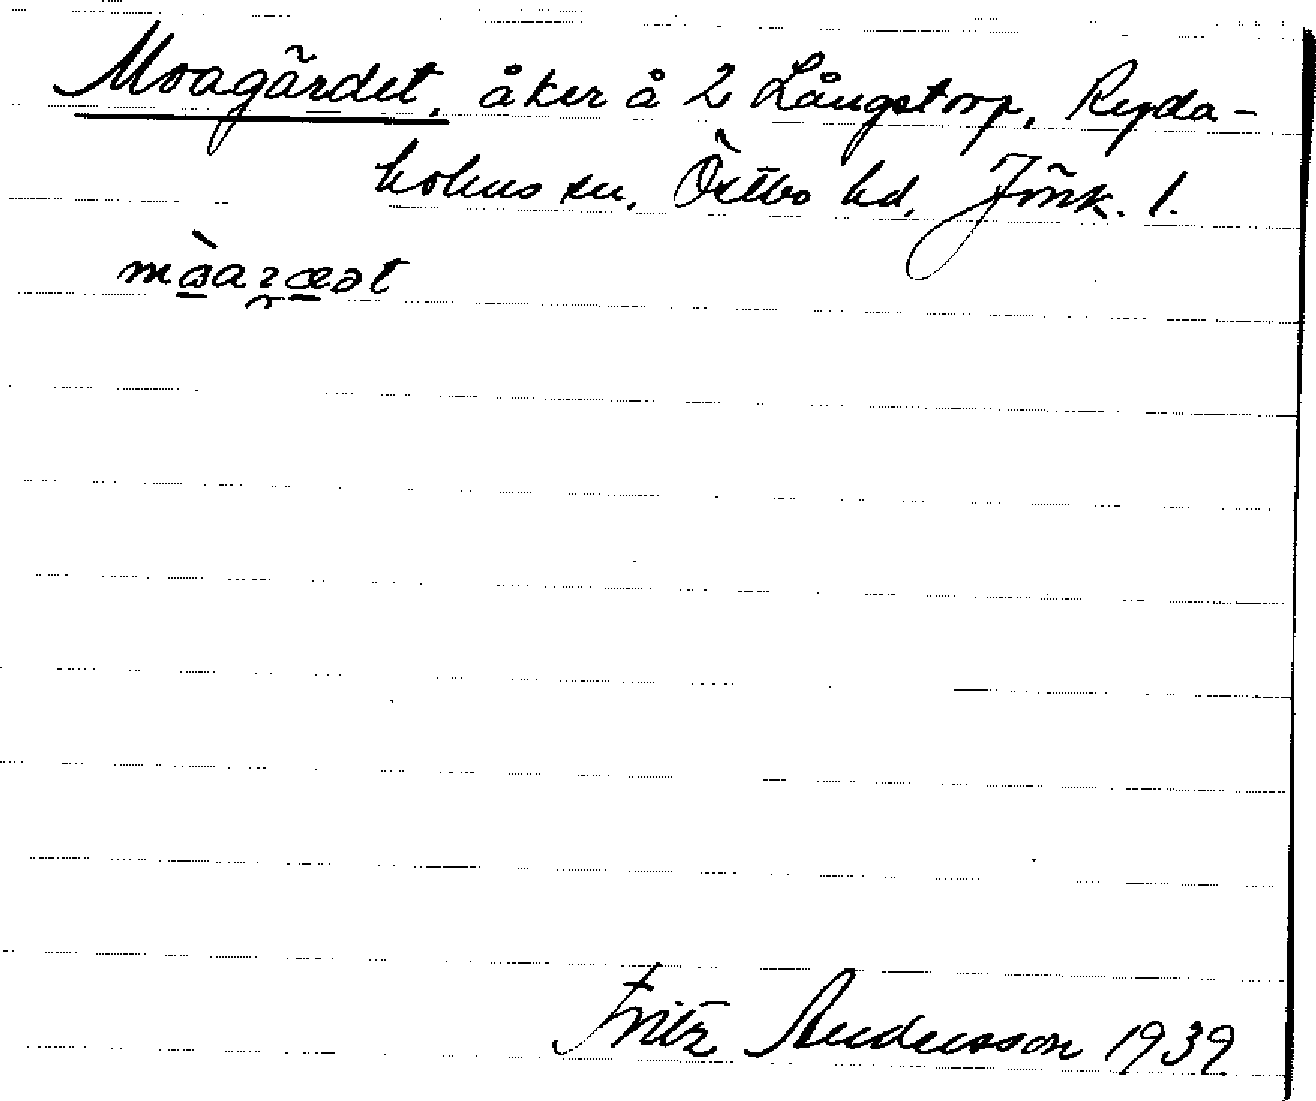 Moagärdet, åker å 2 Långstorp, Ryda-
holms sn. Östbo hd. Jönk. l.
Fritz Andersson 1939